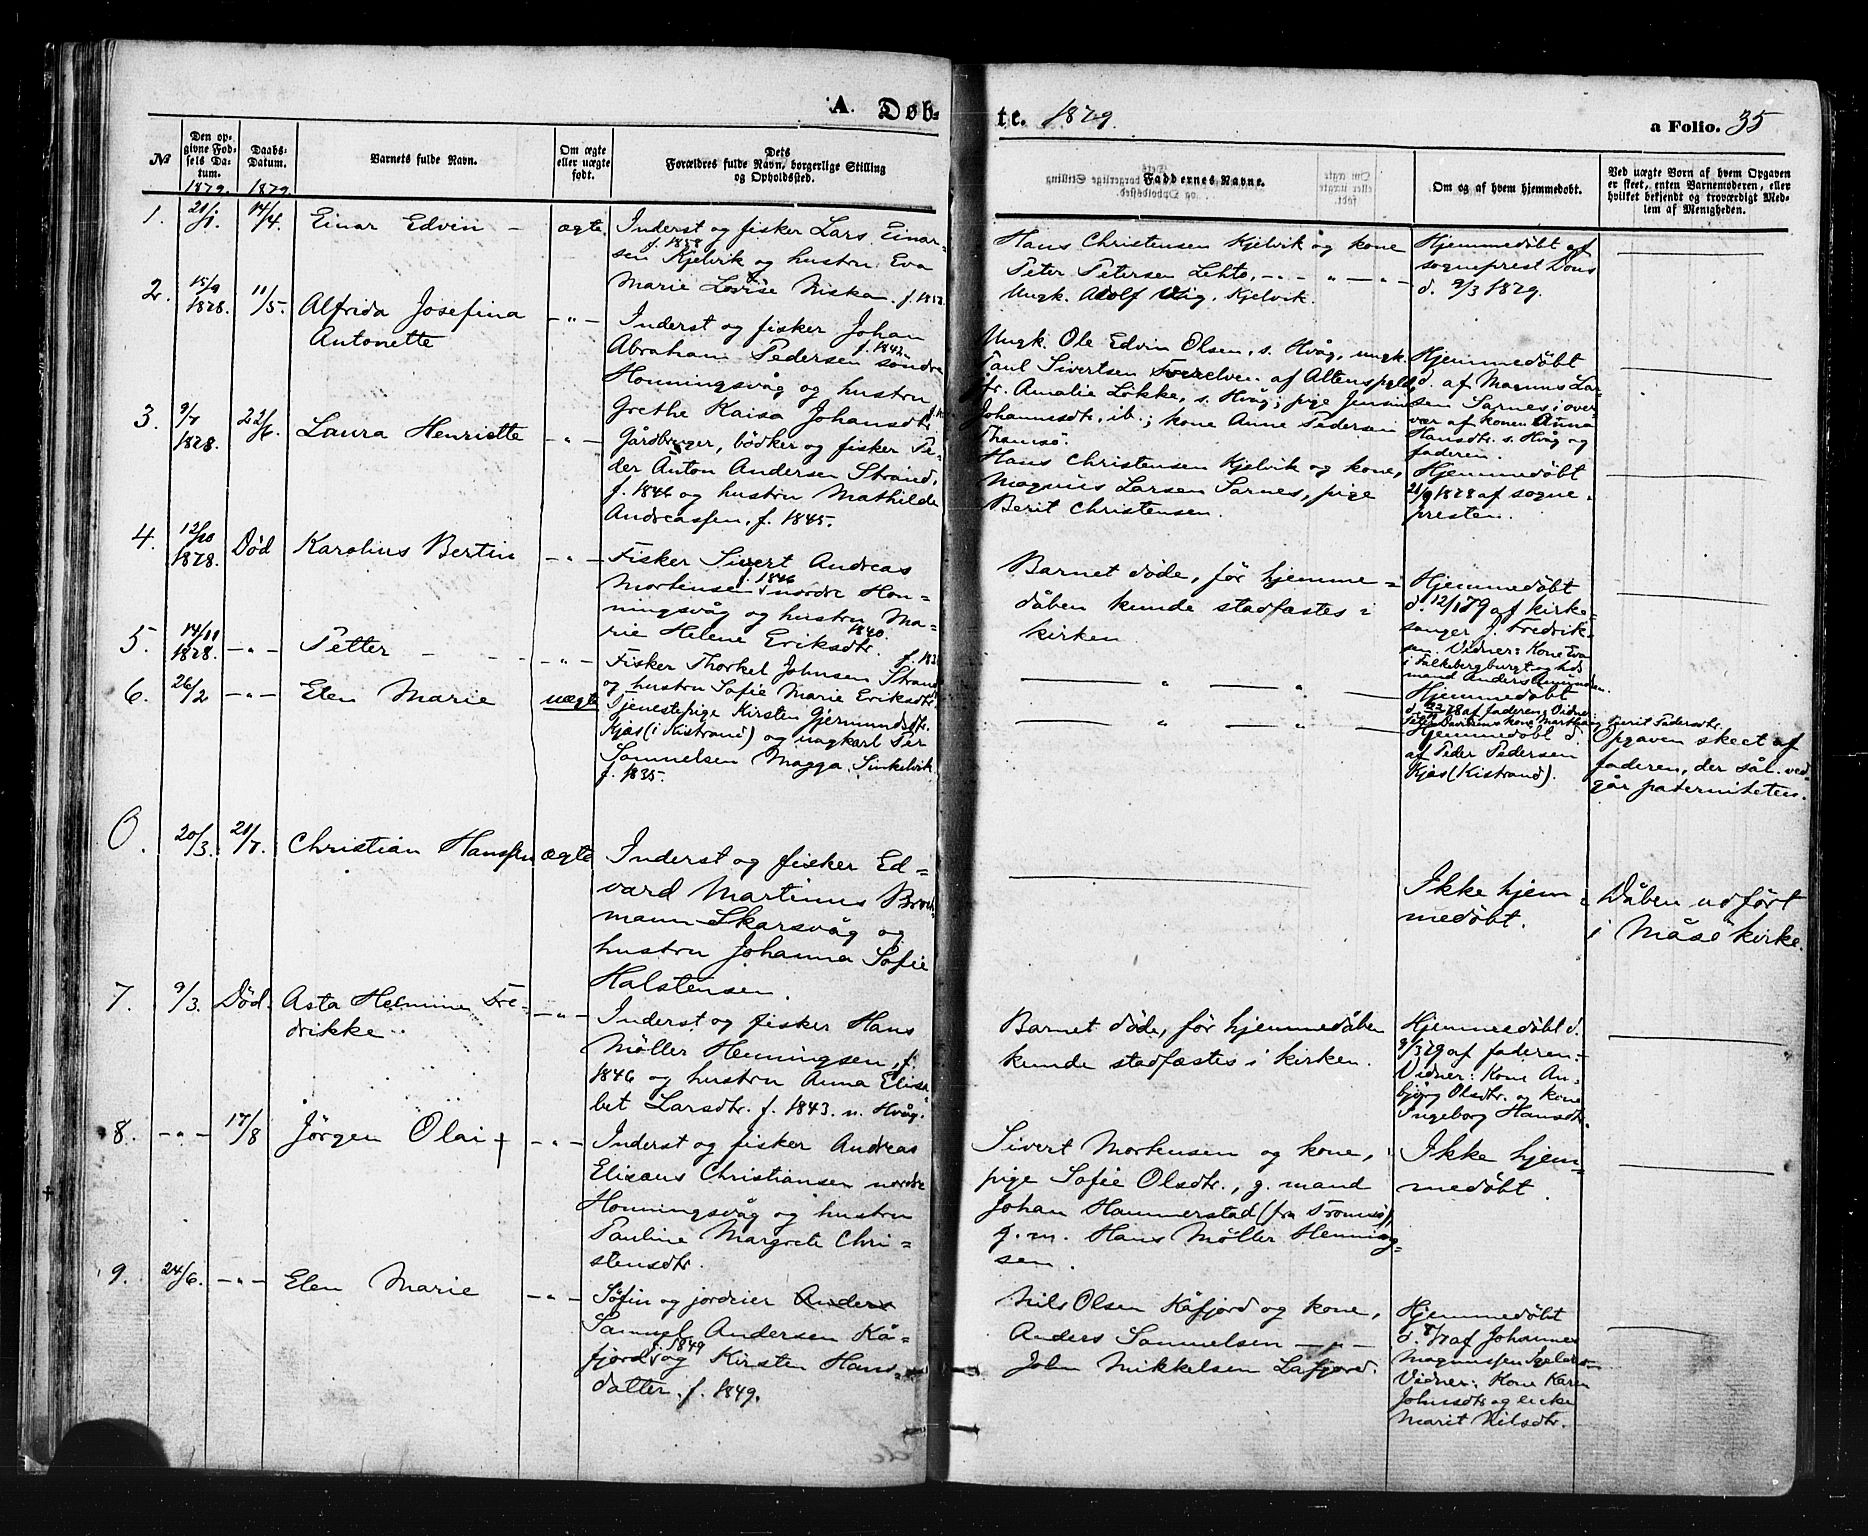 A. Døb-
te. 1879.
a Folio. 35
№
Den op-
givne Fød-
sels Da-
tum.
1879.
Daabs-
Datum.
1879
Barnets fulde Navn.
Om ægte
eller uægte
født.
Dets
Forældres fulde Navn, borgerlige Stilling
og Opholdssted.
Faddernes Navne.
Om og af hvem hjemmedøbt.
Ved uægte Børn af hvem Opgaven
er skeet, enten Barnemoderen, eller
hvilket bekjendt og troværdigt Med-
lem af Menigheden.
1.
21/1.
14/4.
Einar Edvin -
ægte.
Inderst og fisker Lars Einar-
f. 1858
sen Kjelvik og hustru Eva
Marie Lovise Niska. f. 185
Hans Christensen Kjelvik og kone
Peter Petersen Lehto, - " - " - " -
Ungk. Adolf Kjelvik.
Hjemmedøbt af
sogneprest Dons
d. 9/3 1879.
2.
15/9
1878.
11/5.
Alfrida Josefina
Antonette
- " -
Inderst og fisker Johan
f. 1842
Abraham Pedersen søndre
Honningsvåg og hustru
Grethe Kaisa Johansdtr.
Ungk. Ole Edvin Olsen, s. Hvåg, ungk.
Paul Sivertsen Tverelven af Altens pgld,
jfr. Amalie Løkke, s. Hvåg; pige Jensine
Johannsdtr. ib.; kone Anne Pedersen
Tromsø.
Hjemmedøbt
d. af Magnus Lar-
sen Sarnes; over-
vær af konen Anna
Hansdtr. s. Hvåg og
faderen.
3.
9/7
1878.
22/6.
Laura Henriette
- " -
Gårdbruger, bødker og fisker Pe-
der Anton Andersen Strand,
f. 1846 og hustru Mathilde
Andreassen, f. 1845.
Hans Christensen Kjelvik og kone,
Magnus Larsen Sarnes, pige
Berit Christensen.
Hjemmedøbt
21/9 1878 af sogne-
presten.
4.
12/10
1878.
Død
Karolius Bertin
- " -
Fisker Sivert Andreas
f. 1846
Mortensen nordre Hon-
ningsvåg og hustru Ma-
1840.
rie Helene Eriksdtr.
Barnet døde, før hjemme-
dåben kunde stadfæstes i
kirken.
Hjemmedøbt
d. 12/1 79 af kirke-
sanger J. Fredrik-
sen. Vidner: Kone Eva
Falkebergburgt og hus-
mand Anders Amundsen.
5.
14/11
1878.
- " -
Petter - - -
- " -
Fisker Thorkel Johnsen Strand
og hustru Sofie Marie Eriksdtr.
" "
Hjemmedøbt
af faderen. Vidner
6.
26/2
- " -
Elen Marie
uægte
Tjenestepige Kirsten Gjermundsdtr.
Kjæs (i Kistrand) og ungkarl Per
Samuelsen Magga, Sinkelvik
f. 1835.
" "
Hjemmedøbt d.
af Peder Pedersen
Kjæs (Kistrand).
Opgaven skeet af
faderen, der sål. ved-
går paterniteten.
0.
20/3.
21/7.
Christian Hanssen
ægte
Inderst og fisker Ed-
vard Martinus Broch-
mann Skarsvåg og
hustru Johanna Sofie
Halstensen.
Ikke hjem-
medøbt.
Dåben udført
i Måsø kirke.
7.
9/3.
Død.
Asta Helmine Fre-
drikke
- " -
Inderst og fisker Hans
Møller Henningsen, f.
1846 og hustru Anna Elisa-
bet Larsdtr. f. 1843. n. Hvåg.
Barnet døde, før hjemmedåben
kunde stadfæstes i kirken.
Hjemmedøbt d.
9/3 79 af faderen.
Vidner: Kone An-
bjørg Olsdtr. og kone
Ingeborg Hansdtr.
8.
- " -
17/8
Jørgen Olai +
- " -
Inderst og fisker Andreas
Elisæus Christiansen nordre
Honningsvåg og hustru
Pauline Margrete Chri-
stensdtr.
Sivert Mortensen og kone,
pige Sofie Olsdtr., g. mand
Johan Hammerstad (fra Tromsø),
g. m. Hans Møller Henning-
sen.
Ikke hjem-
medøbt.
9.
24/6.
- " -
Elen Marie
- " -
Søfin og jordeier Anders
Samuel Andersen Kå-
f. 1849
fjord og Kirsten Hans-
datter. f. 1849.
Nils Olsen Kåfjord og kone,
Anders Samuelsen - " -
John Mikkelsen Lafjord.
Hjemmedøbt
d. 8/7 af Johannes
Magnussen
Vidner: Kone Karen
Johnsdtr og enke
Marit Nilsdtr.